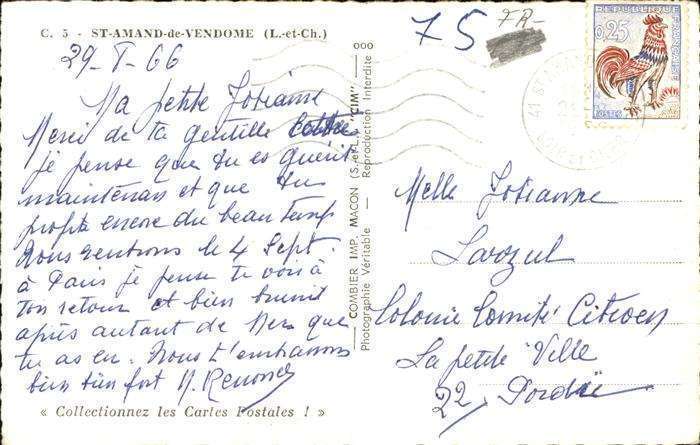 C. 5 - ST-AMAND-de-VENDOME (L.-et-Ch.)
29-8-66
Ma petite Josianne
Merci de ta gentille lettre
je pense que tu es guérit
maintenan et que tu
profite encore du beau temps
Nous rentrons le 4 Sept.
à Paris je pense te voir à
ton retour et bien brunit
après autant de Mer que
tu as eu. Nous t'embrassons
bien bien fort M.
« Collectionnez les Cartes Postales ! »
COMBIER IMP. MACON (S.-et-L.) "CIM"
Photographie Véritable — Reproduction Interdite
75 FR-
REPUBLIQUE FRANÇAISE
0,25
POSTES
Melle Josianne
Colonie Comité Citroen
La petite Ville
22